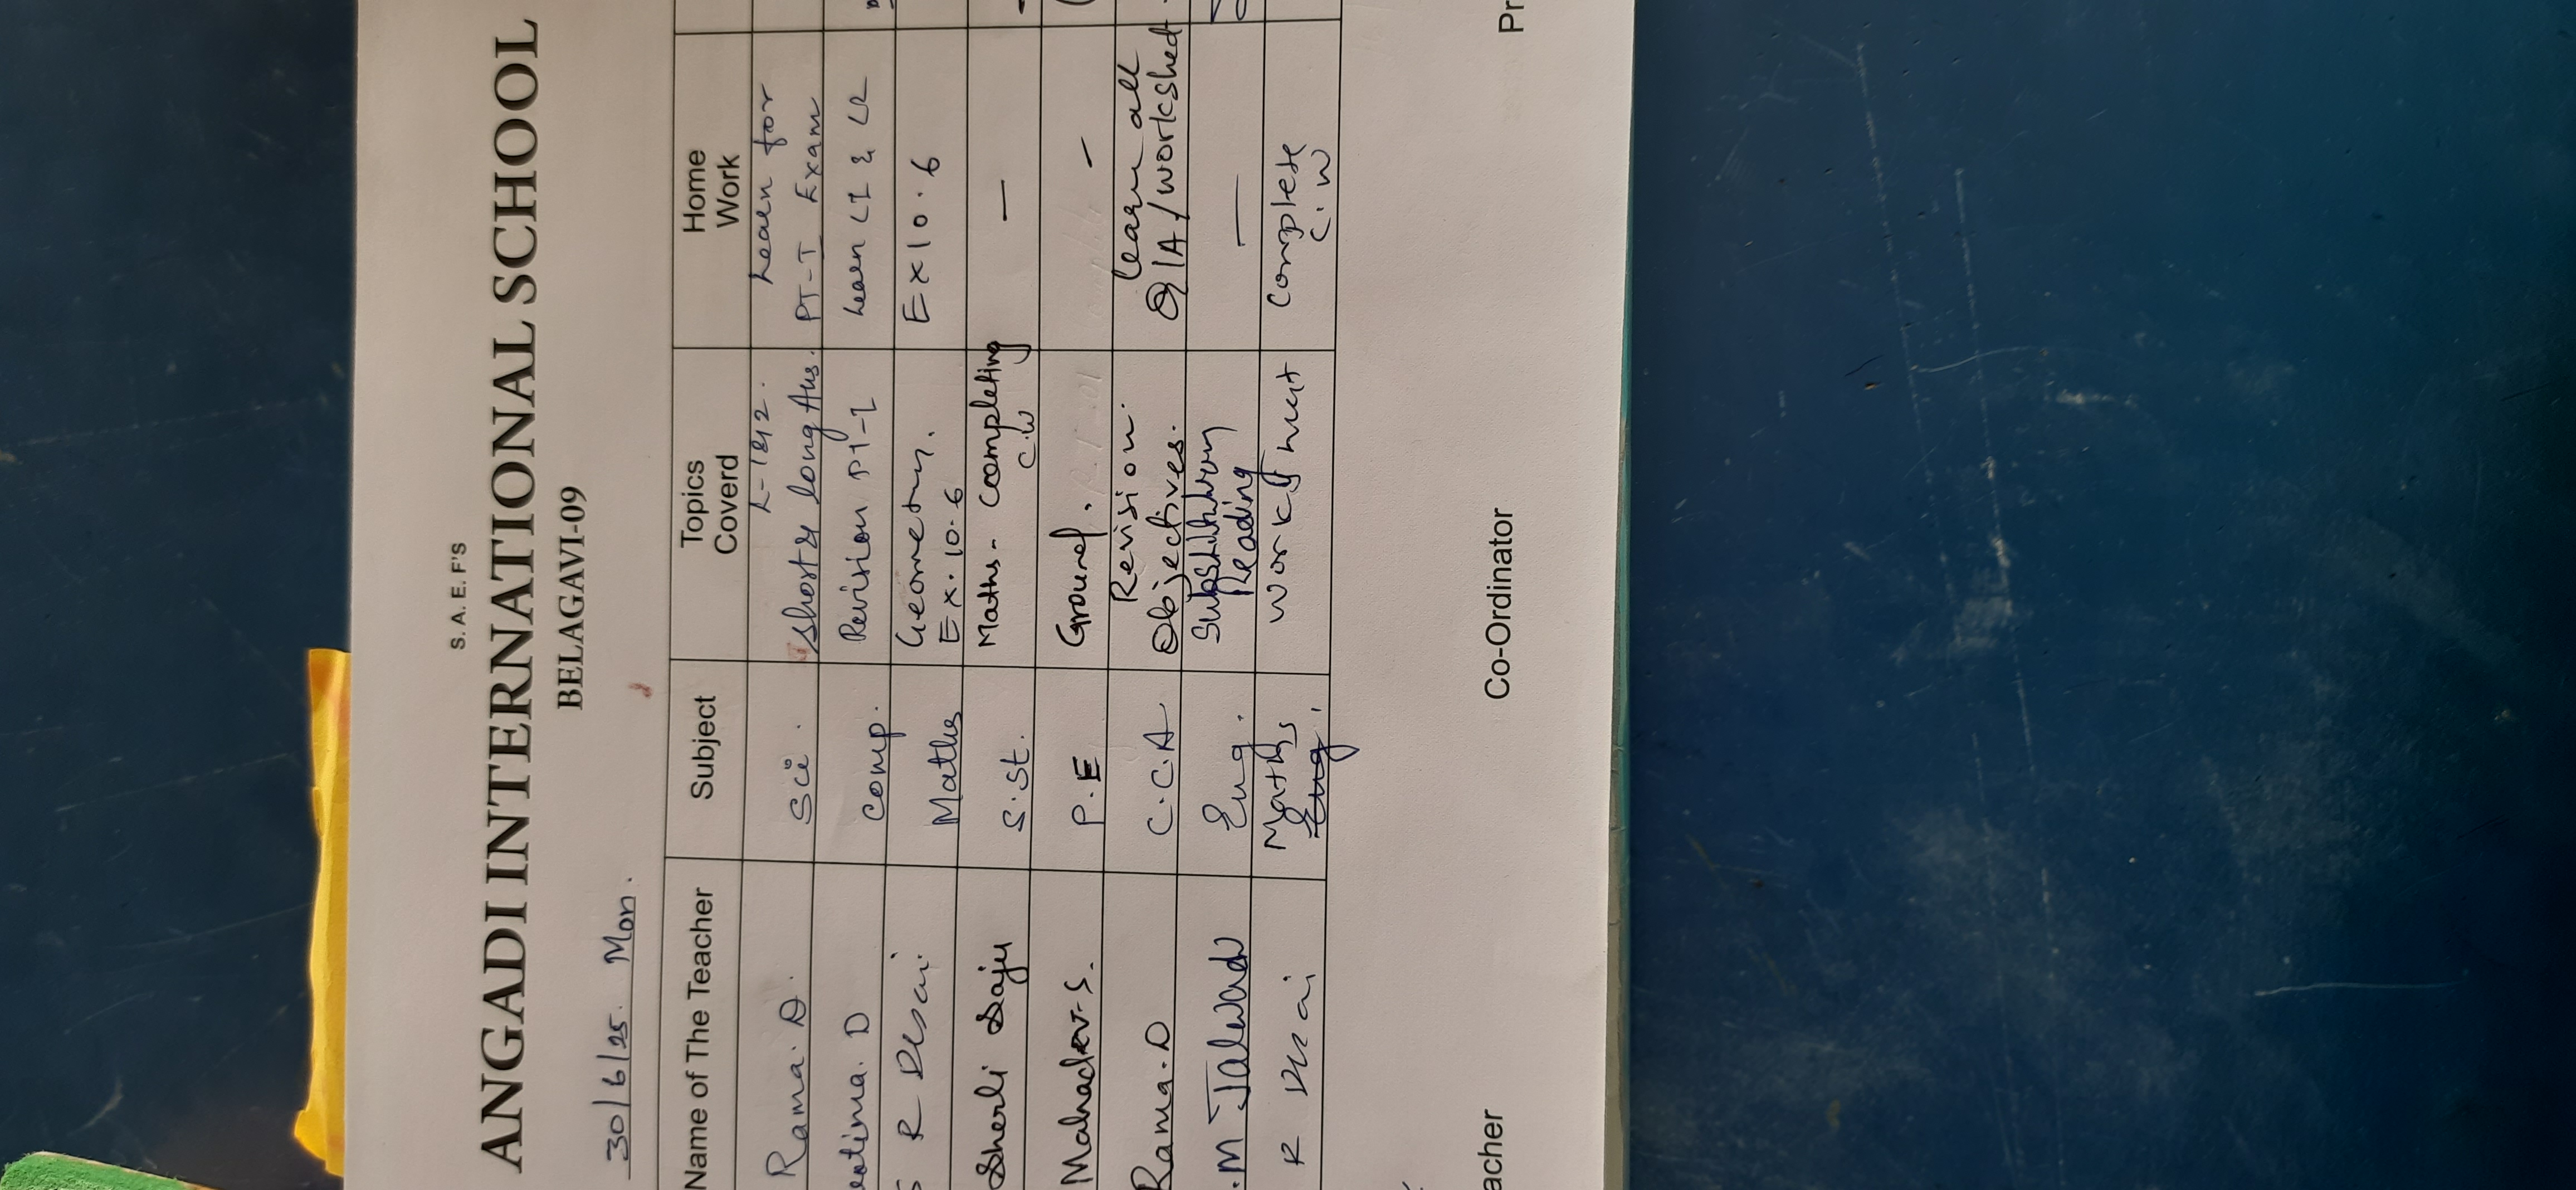 S. A. E. F'S
ANGADI INTERNATIONAL SCHOOL
BELAGAVI-09
30/6/25. Mon.
Name of The Teacher Subject Topics Coverd Home Work
Rama. D. Sci. L-1&2. Short & long Ans. Learn for PT-I Exam
D Comp. Revision PT-1 Learn L1 & L2
R Desai Maths Geometry. Ex. 10.6 Ex 10.6
Sherli Saju S.St. Maths - completing C.W —
Mahadev.S. P.E Ground. –
Rama.D C.C.A Revision. Objectives. learn all Q/A/worksheet
.M Jalwadi Eng. Substitution Reading —
R Desai Maths Worksheet Complete C.W
acher Co-Ordinator Pr